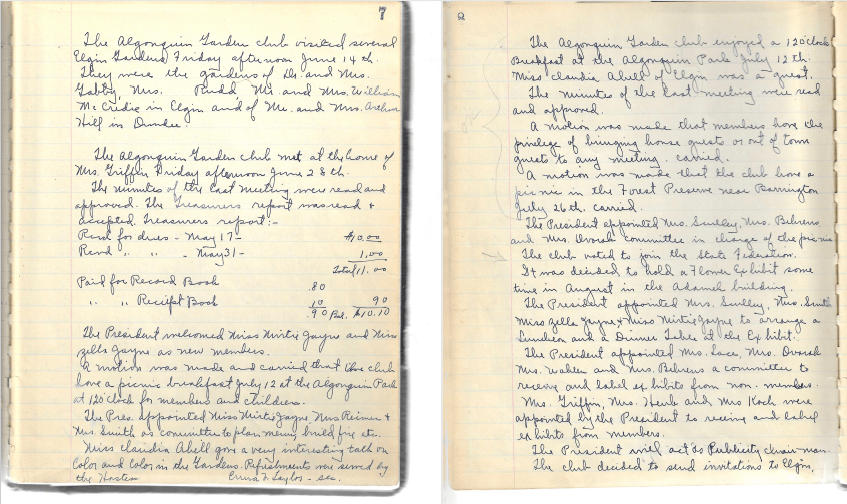 7
The Algonquin Garden club visited several
Elgin Gardens Friday afternoon June 14th.
They were the gardens of Dr. and Mrs.
Gabby, Mrs. Rudd Mr. and Mrs. William
McCredie in Elgin and of Mr. and Mrs. Arthur
Hill in Dundee.
The Algonquin Garden club met at the home of
Mrs. Griffin Friday afternoon June 28th.
The minutes of the last meeting were read and
approved. The Treasurers report was read &
accepted. Treasurers report:-
Recvd for dues - May 17- $10.00
Recvd " " - May 31- 1.00
Total 11.00
Paid for Record Book .80
" " Receipt Book .10 .90
.90 Bal. $10.10
The President welcomed Miss Mirtie Jayne and Miss
Zella Jayne as new members.
A motion was made and carried that the club
have a picnic breakfast July 12 at the Algonquin Park
at 12 O'Clock for members and children.
The Pres. appointed Miss Mirtie Jayne Mrs Reimer &
Mrs. Smith as committee to plan menu, build fire etc.
Miss Claudia Abell gave a very interesting talk on
Color and Color in the Gardens. Refreshments were served by
the Hostess Erma F. Taylor - sec.
8
The Algonquin Garden club enjoyed a 12 O'clock
Breakfast at the Algonquin Park July 12th.
Miss Claudia Abell of Elgin was a guest.
The minutes of the last meeting were read
and approved.
A motion was made that members have the
privlege of bringing house guests or out of town
guests to any meeting. carried.
A motion was made that the club have a
picnic in the Forest Preserve near Barrington
July 26th. carried.
The President appointed Mrs. Smilley, Mrs. Behrens
and Mrs. Dvorak committee in charge of the picnic
The club voted to join the State Federation.
It was decided to hold a Flower Exhibit some
time in August in the Adamek building.
The President appointed Mrs. Smilley, Mrs. Smith
Miss Zella Jayne & Miss Mirtie Jayne to arrange a
Luncheon and a Dinner Table at the Exhibit.
The President appointed Mrs. Lace, Mrs. Dvorak
Mrs. Wahlen and Mrs. Behrens a committee to
receive and label exhibits from non-members.
Mrs. Griffin, Mrs. Herb and Mrs Koch were
appointed by the President to receive and label
exhibits from members.
The President will act as Publicity chairman.
The club decided to send invitations to Elgin,